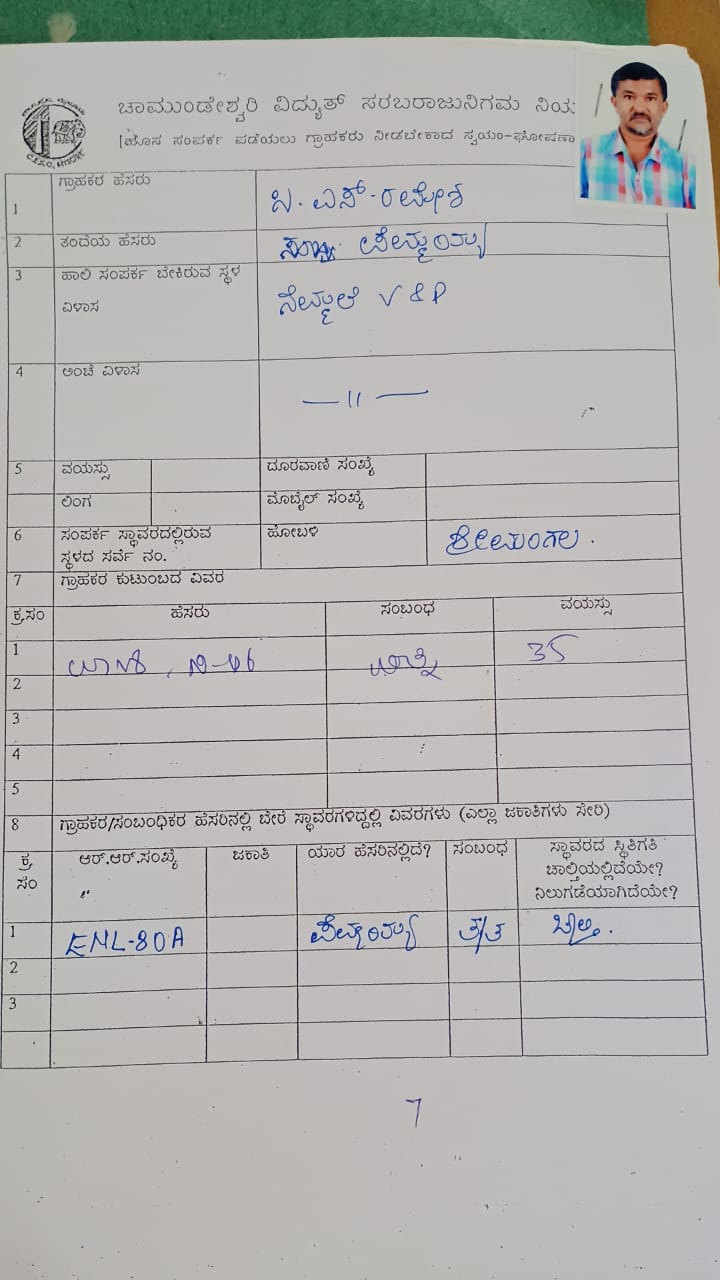 ಚಾಮುಂಡೇಶ್ವರಿ ವಿದ್ಯುತ್ ಸರಬರಾಜುನಿಗಮ ನಿಯ
[ಹೊಸ ಸಂಪರ್ಕ ಪಡೆಯಲು ಗ್ರಾಹಕರು ನೀಡಬೇಕಾದ ಸ್ವಯಂ-ಘೋಷಣಾ
1 ಗ್ರಾಹಕರ ಹೆಸರು ಬಿ. ಎನ್. ರಮೇಶ
2 ತಂದೆಯ ಹೆಸರು
3 ಹಾಲಿ ಸಂಪರ್ಕ ಬೇಕಿರುವ ಸ್ಥಳ
ವಿಳಾಸ V & P
4 ಅಂಚೆ ವಿಳಾಸ — 11 —
5 ವಯಸ್ಸು ದೂರವಾಣಿ ಸಂಖ್ಯೆ
ಲಿಂಗ ಮೊಬೈಲ್ ಸಂಖ್ಯೆ
6 ಸಂಪರ್ಕ ಸ್ಥಾವರದಲ್ಲಿರುವ ಹೋಬಳಿ ಶ್ರೀಮಂಗಲ.
ಸ್ಥಳದ ಸರ್ವೆ ನಂ.
7 ಗ್ರಾಹಕರ ಕುಟುಂಬದ ವಿವರ
ಕ್ರ.ಸಂ ಹೆಸರು ಸಂಬಂಧ ವಯಸ್ಸು
1 ಪತ್ನಿ 35
2
3
4
5
8 ಗ್ರಾಹಕರ/ಸಂಬಂಧಿಕರ ಹೆಸರಿನಲ್ಲಿ ಬೇರೆ ಸ್ಥಾವರಗಳಿದ್ದಲ್ಲಿ ವಿವರಗಳು (ಎಲ್ಲಾ ಜಕಾತಿಗಳು ಸೇರಿ)
ಕ್ರ ಆರ್.ಆರ್.ಸಂಖ್ಯೆ ಜಕಾತಿ ಯಾರ ಹೆಸರಿನಲ್ಲಿದೆ? ಸಂಬಂಧ ಸ್ಥಾವರದ ಸ್ಥಿತಿಗತಿ
ಸಂ ಚಾಲ್ತಿಯಲ್ಲಿದೆಯೇ?
ನಿಲುಗಡೆಯಾಗಿದೆಯೇ?
1 ENL-80A
2
3
7